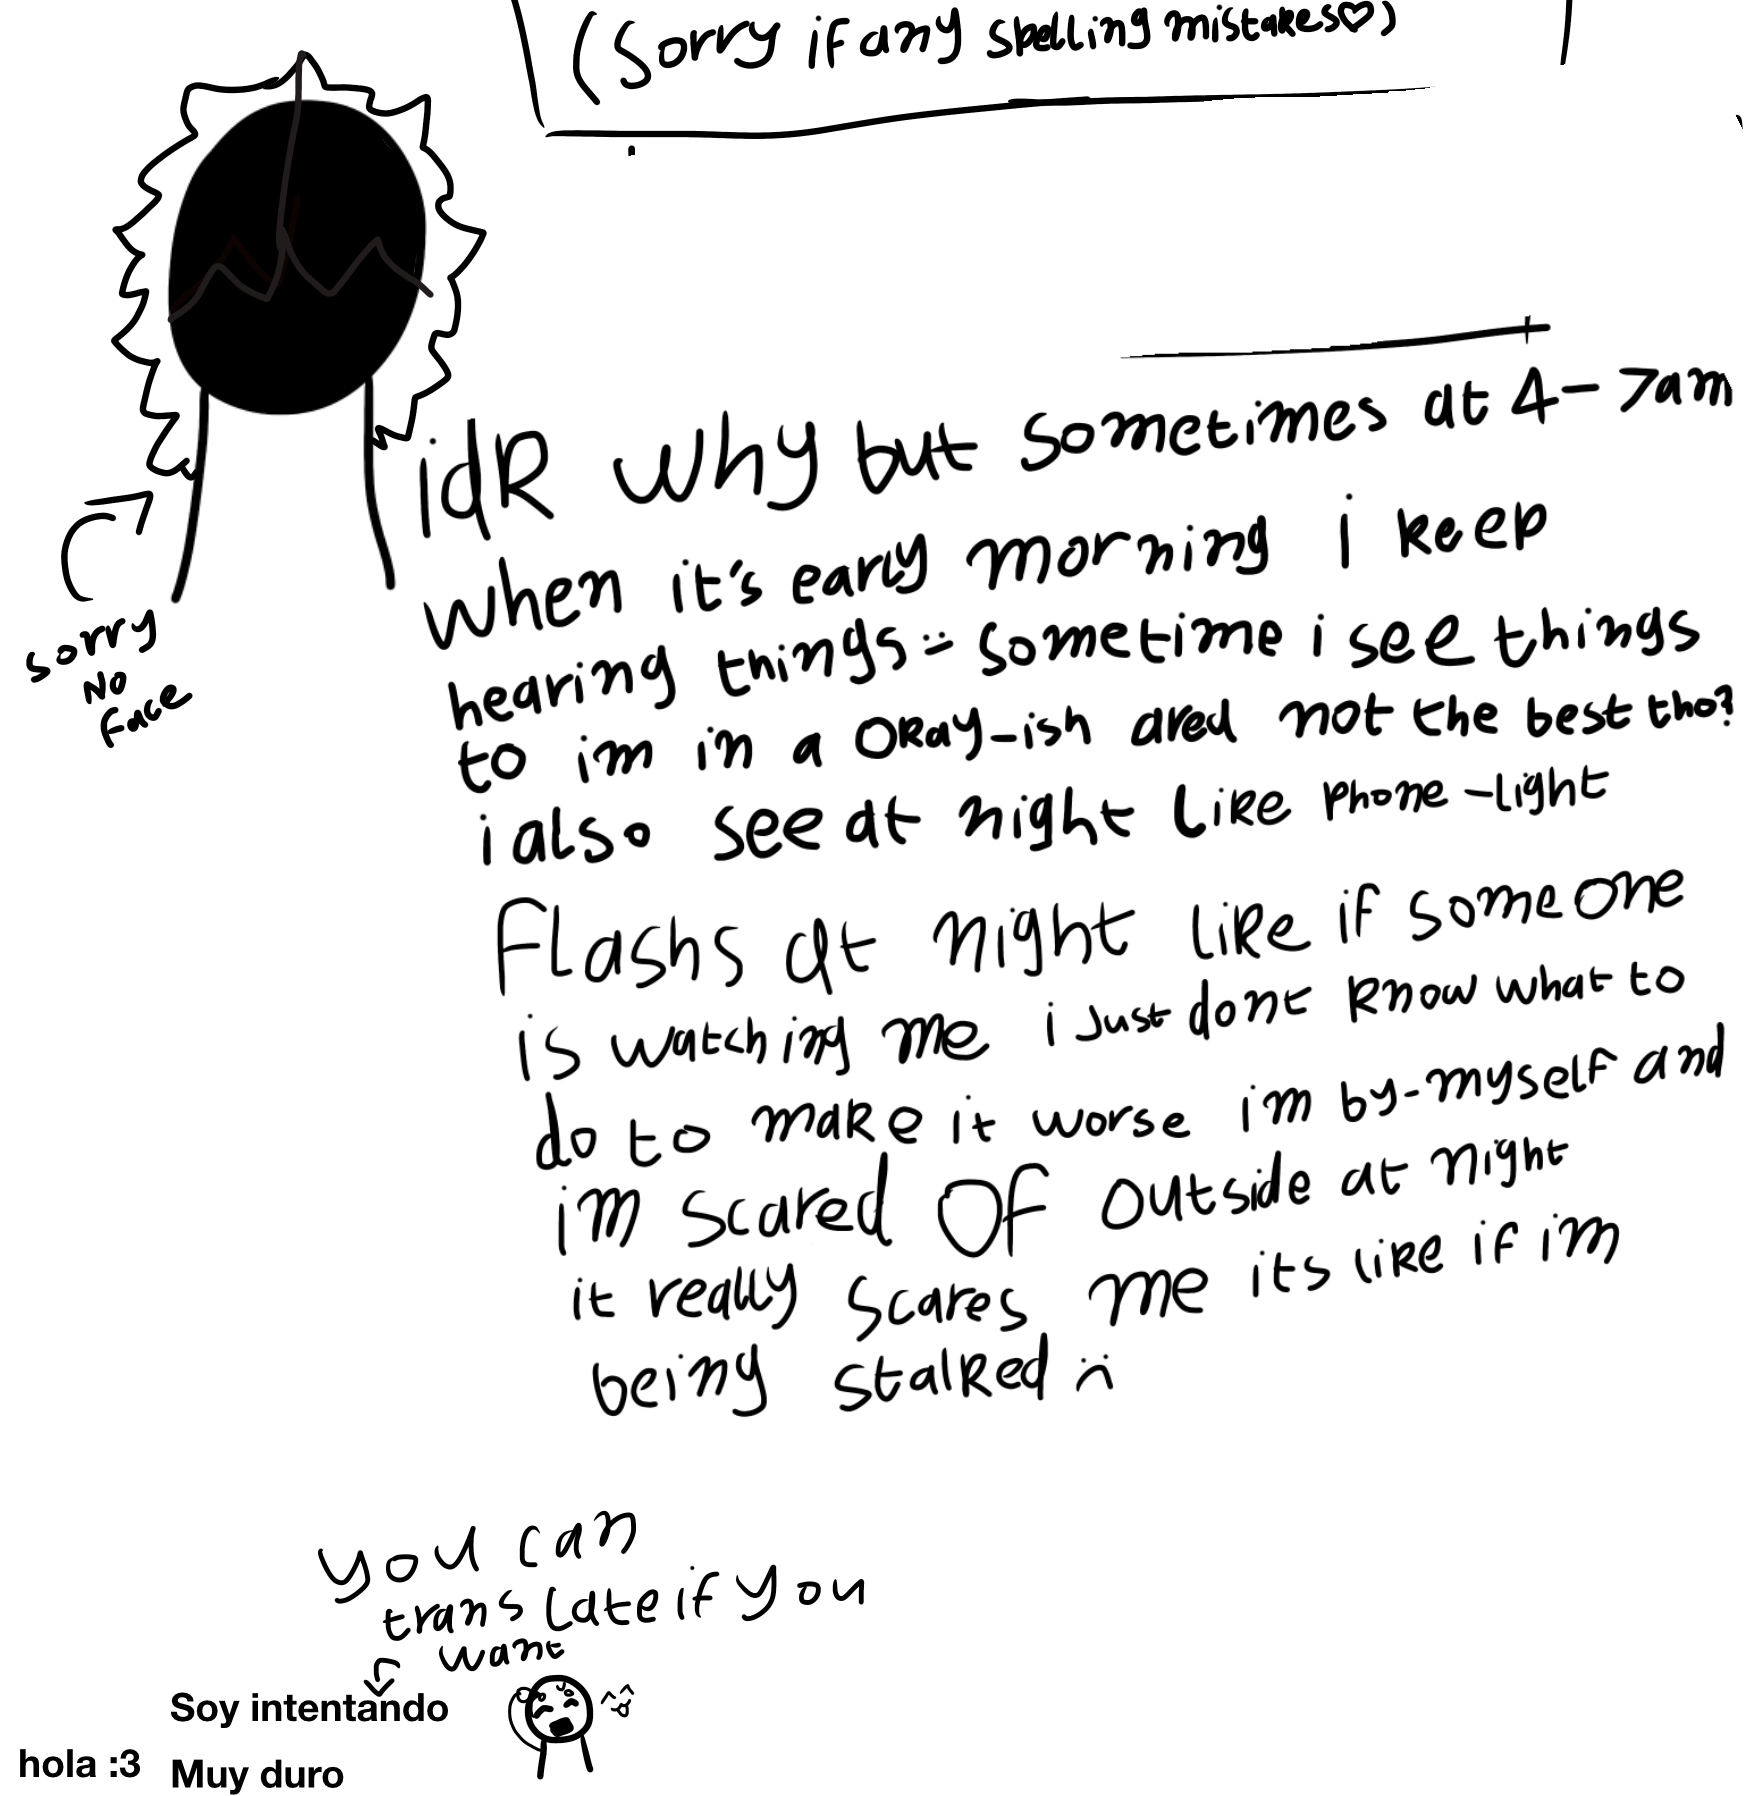 (Sorry if any spelling mistakes♡)
idk why but sometimes at 4-7am
when it's early morning i keep
hearing things= sometime i see things
to im in a okay-ish area not the best tho?
i also see at night like phone-light
Flashs at night like if someone
is watching me i just dont know what to
do to make it worse im by-myself and
im scared OF outside at night
it really scares me its like if im
being stalked :(
sorry
No
face
you can
translate if you
want
Soy intentando
hola :3
Muy duro